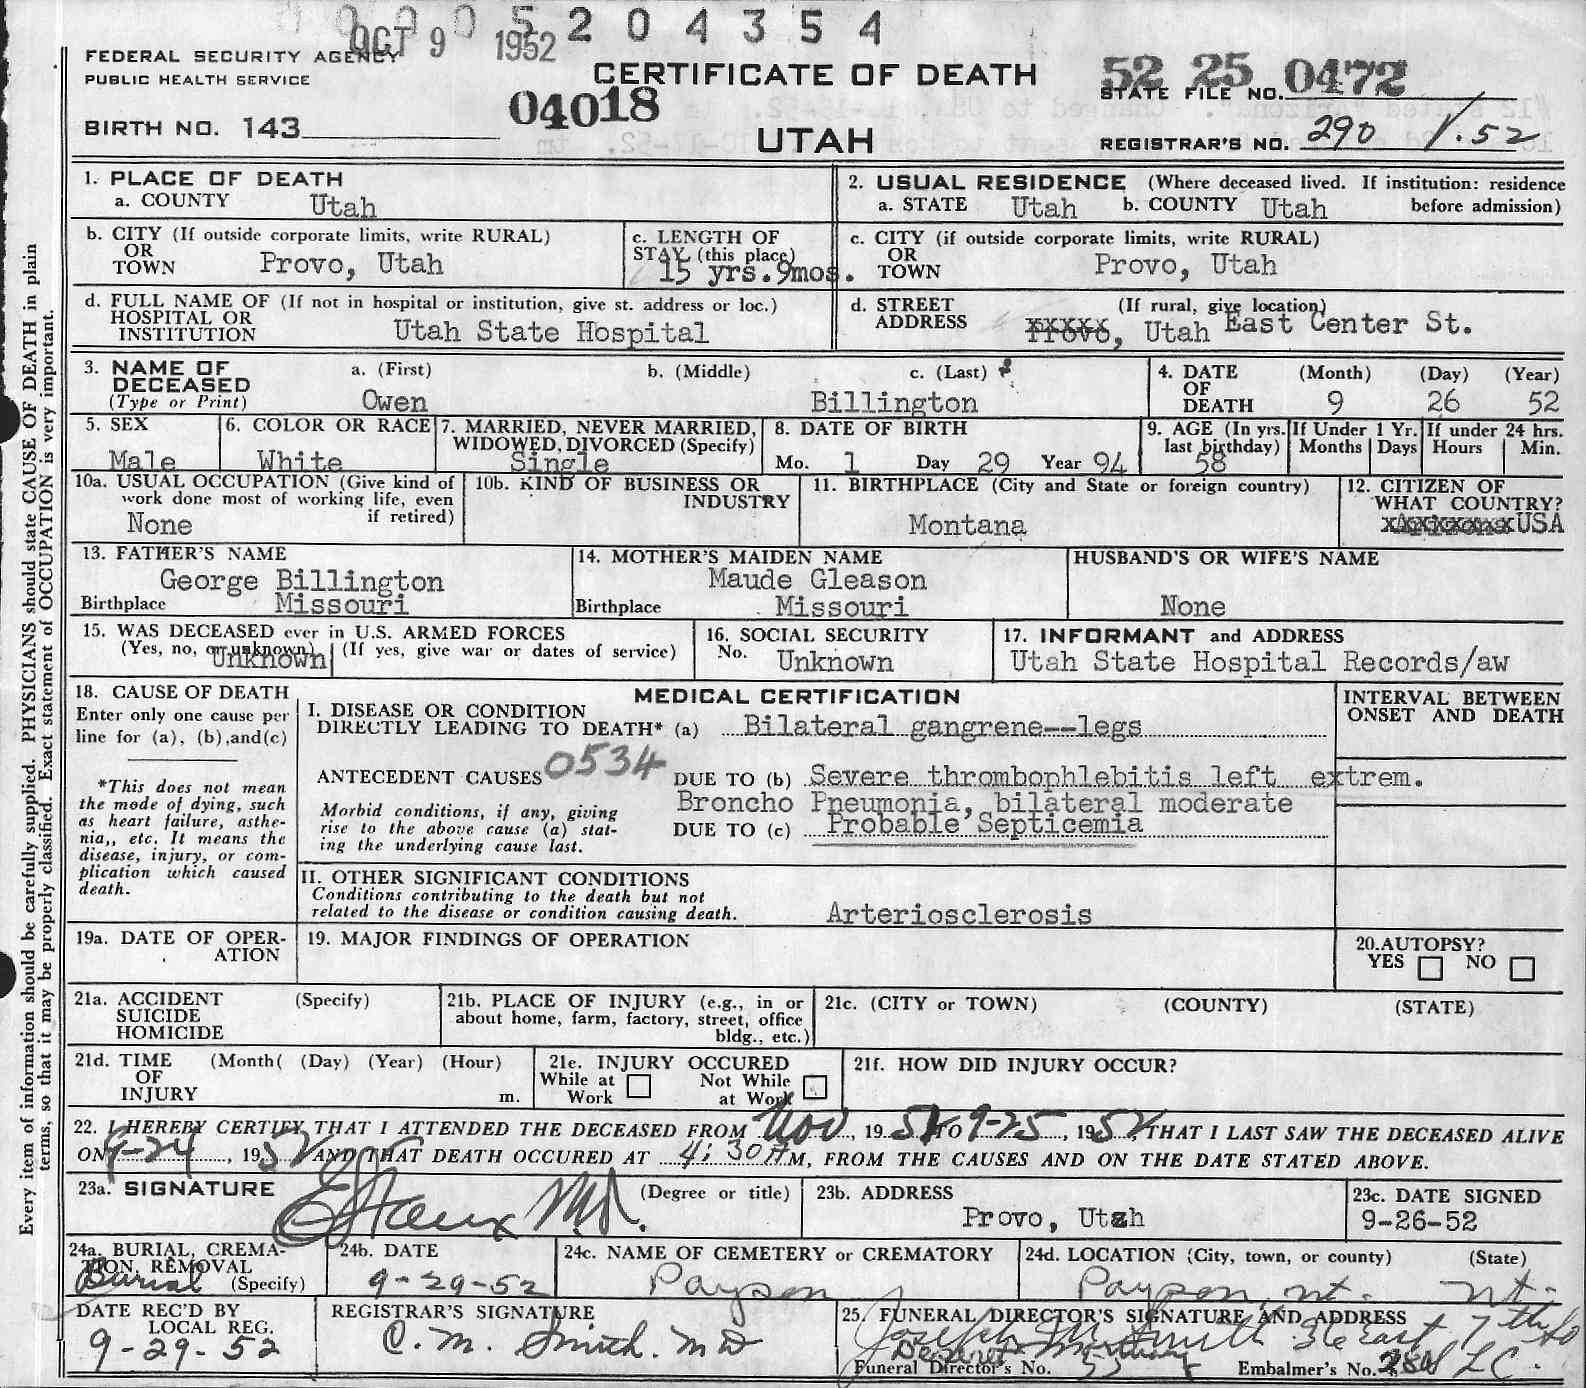 OCT 9 1952 5 2 0 4 3 5 4
FEDERAL SECURITY AGENCY
PUBLIC HEALTH SERVICE
CERTIFICATE OF DEATH
UTAH
04018
BIRTH NO. 143
52 25 0472
STATE FILE NO.
REGISTRAR'S NO. 290 1.52
Every item of information should be carefully supplied. PHYSICIANS should state CAUSE OF DEATH in plain
terms, so that it may be properly classified. Exact statement of OCCUPATION is very important.
1. PLACE OF DEATH
a. COUNTY Utah
2. USUAL RESIDENCE (Where deceased lived. If institution: residence
a. STATE Utah b. COUNTY Utah before admission)
b. CITY (If outside corporate limits, write RURAL)
OR
TOWN Provo, Utah
c. LENGTH OF
STAY (this place)
15 yrs. 9mos.
c. CITY (if outside corporate limits, write RURAL)
OR
TOWN Provo, Utah
d. FULL NAME OF (If not in hospital or institution, give st. address or loc.)
HOSPITAL OR
INSTITUTION Utah State Hospital
d. STREET (If rural, give location)
ADDRESS Provo, Utah East Center St.
3. NAME OF a. (First) b. (Middle) c. (Last)
DECEASED
(Type or Print) Owen Billington
4. DATE (Month) (Day) (Year)
OF
DEATH 9 26 52
5. SEX
Male
6. COLOR OR RACE
White
7. MARRIED, NEVER MARRIED,
WIDOWED, DIVORCED (Specify)
Single
8. DATE OF BIRTH
Mo. 1 Day 29 Year 94
9. AGE (In yrs.
last birthday)
58
If Under 1 Yr.
Months Days
If under 24 hrs.
Hours Min.
10a. USUAL OCCUPATION (Give kind of
work done most of working life, even
if retired)
None
10b. KIND OF BUSINESS OR
INDUSTRY
11. BIRTHPLACE (City and State or foreign country)
Montana
12. CITIZEN OF
WHAT COUNTRY?
USA
13. FATHER'S NAME
George Billington
Birthplace Missouri
14. MOTHER'S MAIDEN NAME
Maude Gleason
Birthplace Missouri
HUSBAND'S OR WIFE'S NAME
None
15. WAS DECEASED ever in U.S. ARMED FORCES
(Yes, no, or unknown) (If yes, give war or dates of service)
Unknown
16. SOCIAL SECURITY
No. Unknown
17. INFORMANT and ADDRESS
Utah State Hospital Records/aw
18. CAUSE OF DEATH
Enter only one cause per
line for (a), (b), and(c)
*This does not mean
the mode of dying, such
as heart failure, asthe-
nia,, etc. It means the
disease, injury, or com-
plication which caused
death.
MEDICAL CERTIFICATION
INTERVAL BETWEEN
ONSET AND DEATH
I. DISEASE OR CONDITION
DIRECTLY LEADING TO DEATH* (a) Bilateral gangrene--legs
ANTECEDENT CAUSES 0534 DUE TO (b) Severe thrombophlebitis left extrem.
Broncho Pneumonia, bilateral moderate
Morbid conditions, if any, giving
rise to the above cause (a) stat-
ing the underlying cause last.
DUE TO (c) Probable Septicemia
II. OTHER SIGNIFICANT CONDITIONS
Conditions contributing to the death but not
related to the disease or condition causing death. Arteriosclerosis
19a. DATE OF OPER-
ATION
19. MAJOR FINDINGS OF OPERATION
20. AUTOPSY?
YES NO
21a. ACCIDENT (Specify)
SUICIDE
HOMICIDE
21b. PLACE OF INJURY (e.g., in or
about home, farm, factory, street, office
bldg., etc.)
21c. (CITY or TOWN) (COUNTY) (STATE)
21d. TIME (Month( (Day) (Year) (Hour)
OF
INJURY m.
21e. INJURY OCCURED
While at Work Not While at Work
21f. HOW DID INJURY OCCUR?
22. I HEREBY CERTIFY THAT I ATTENDED THE DECEASED FROM Nov, 1951 TO 9-25, 1952, THAT I LAST SAW THE DECEASED ALIVE
ON 9-24, 1952 AND THAT DEATH OCCURED AT 4:30 AM, FROM THE CAUSES AND ON THE DATE STATED ABOVE.
23a. SIGNATURE (Degree or title)
M.D.
23b. ADDRESS
Provo, Utah
23c. DATE SIGNED
9-26-52
24a. BURIAL, CREMA-
TION, REMOVAL
Burial (Specify)
24b. DATE
9-29-52
24c. NAME OF CEMETERY or CREMATORY
Payson
24d. LOCATION (City, town, or county) (State)
Payson, ut. ut.
DATE REC'D BY
LOCAL REG.
9-29-52
REGISTRAR'S SIGNATURE
C. M. Smith. MD
25. FUNERAL DIRECTOR'S SIGNATURE AND ADDRESS
Joseph M. Smith 36 East 7th So
Deseret Mortuary
Funeral Director's No. Embalmer's No.